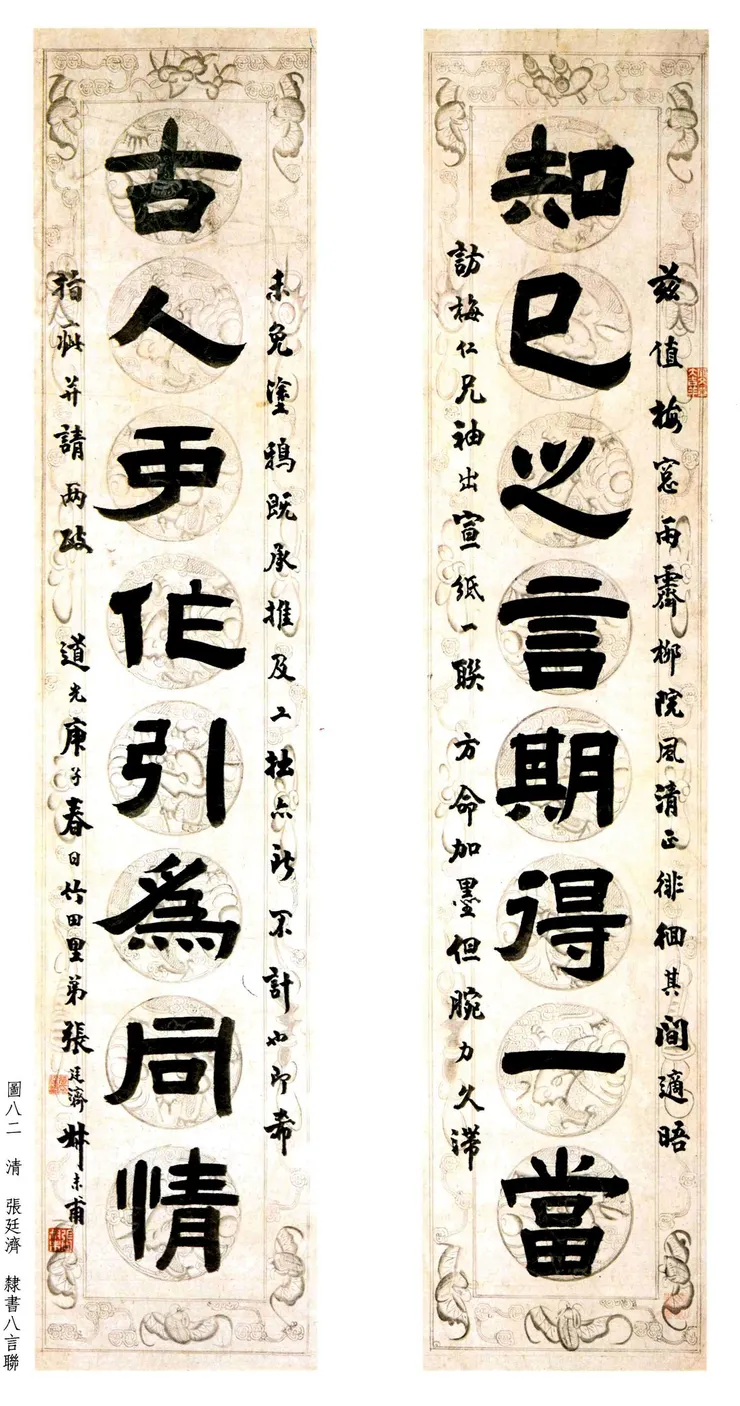 茲值梅窓雨霽柳院風清正徘徊其間適晤
知己之言期得一當
訪梅仁兄袖出宣紙一聯 方命加墨但腕力久滯
未免塗鴉既承推及工拙亦所不計也即希
古人作引為同情
指疵并請兩政 道光庚子春日竹田里弟張廷濟叔未甫
圖八二 清 張廷濟 隸書八言聯